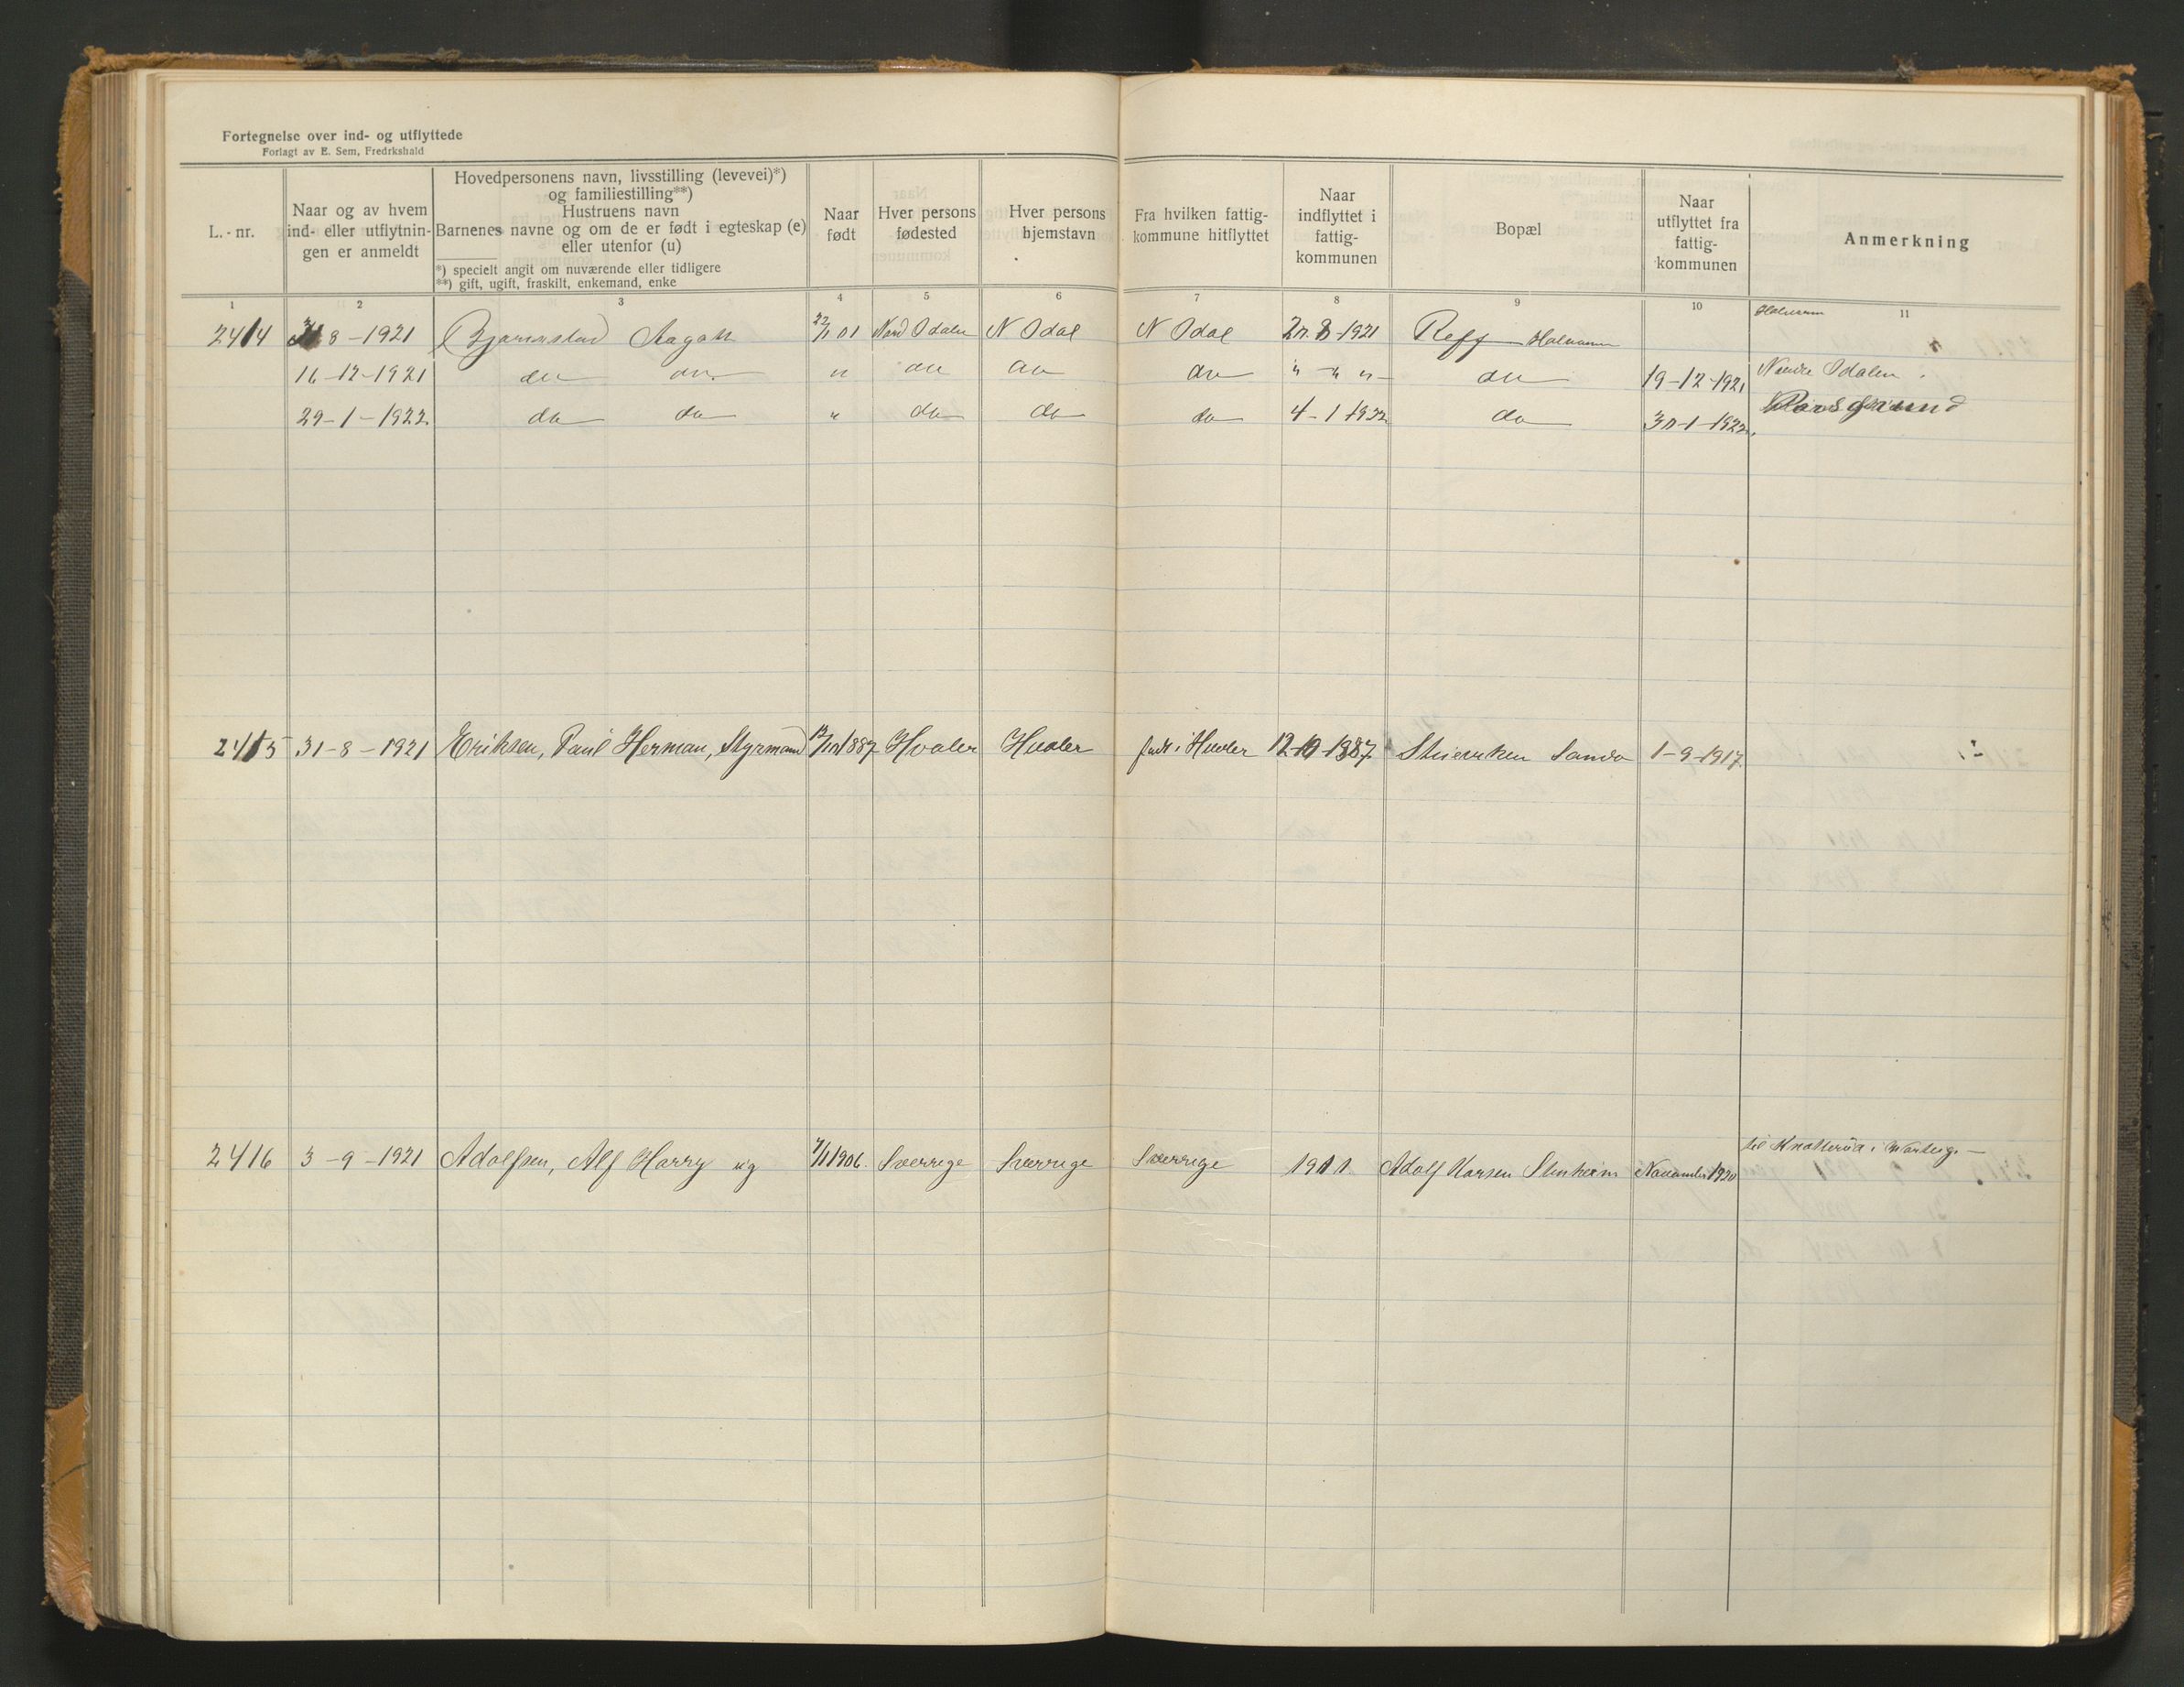 Fortegnelse over ind- og utflyttede
Forlagt av E. Sem, Fredrkshald
L.-nr.
Naar og av hvem ind- eller utflytnin- gen er anmeldt
Hovedpersonens navn, livsstilling (levevei)*)
og familiestilling**)
Hustruens navn
Barnenes navne og om de er født i egteskap (e)
eller utenfor (u)
*) specielt angit om nuværende eller tidligere
**) gift, ugift, fraskilt, enkemand, enke
Naar født
Hver persons fødested
Hver persons hjemstavn
Fra hvilken fattig- kommune hitflyttet
Naar indflyttet i fattig- kommunen
Bopæl
Naar utflyttet fra fattig- kommunen
Anmerkning
1 2 3 4 5 6 7 8 9 10 11
2414 8-1921 Bjørnstad Aagot 22/1 01 Nord Odalen N Odal N Odal 8-1921 Reff
16-12-1921 do do " do do do " " " do 19-12-1921 Nordre Odalen.
29-1-1922. do do " do do do 4-1-1922. do 30-1-1922. Porsgrund
2415 31-8-1921 Eriksen, Paul Herman, Styrmand 12/10 1887 Hvaler Hvaler født i Hvaler 12-10-1887. Sando 1-9-1917.
2416 3-9-1921 Adolfsen, Alf Harry ug 1906. Sverrige Sverrige Sverrige 1911. Adolf Karsen Stenheim November 1920 til Knatterød i Varteig.